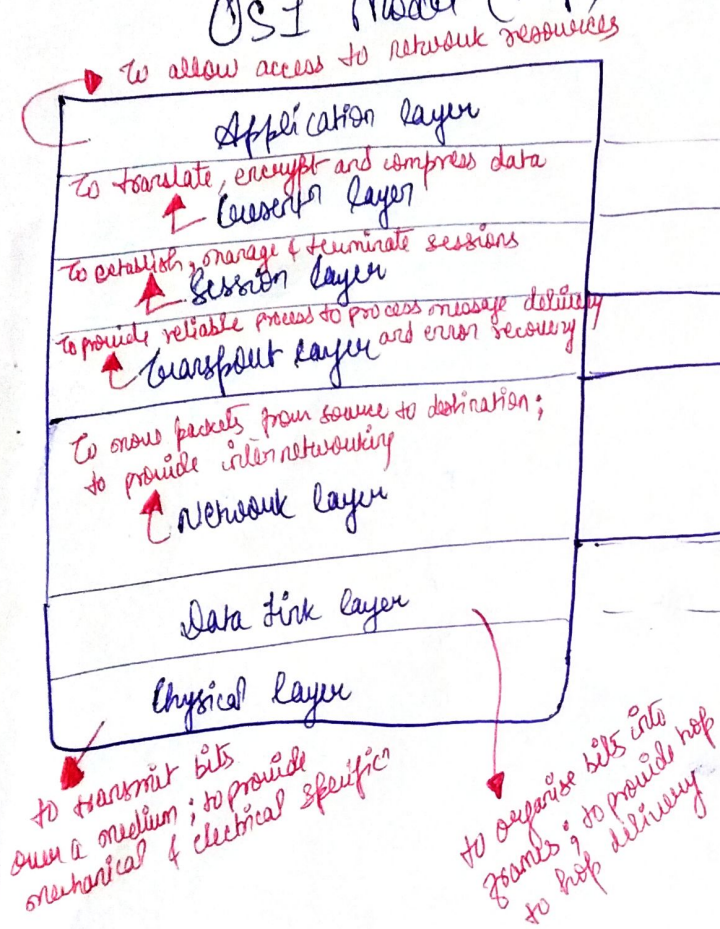 OSI Model
to allow access to network resources
Application layer
to translate, encrypt and compress data
Presentn layer
to establish, manage & terminate sessions
Session layer
to provide reliable process to process message delivery
and error recovery
Transport layer
to move packets from source to destination;
to provide internetworking
Network layer
Data Link layer
Physical layer
to transmit bits
over a medium; to provide
mechanical & electrical specificn
to organise bits into
frames; to provide hop
to hop delivery